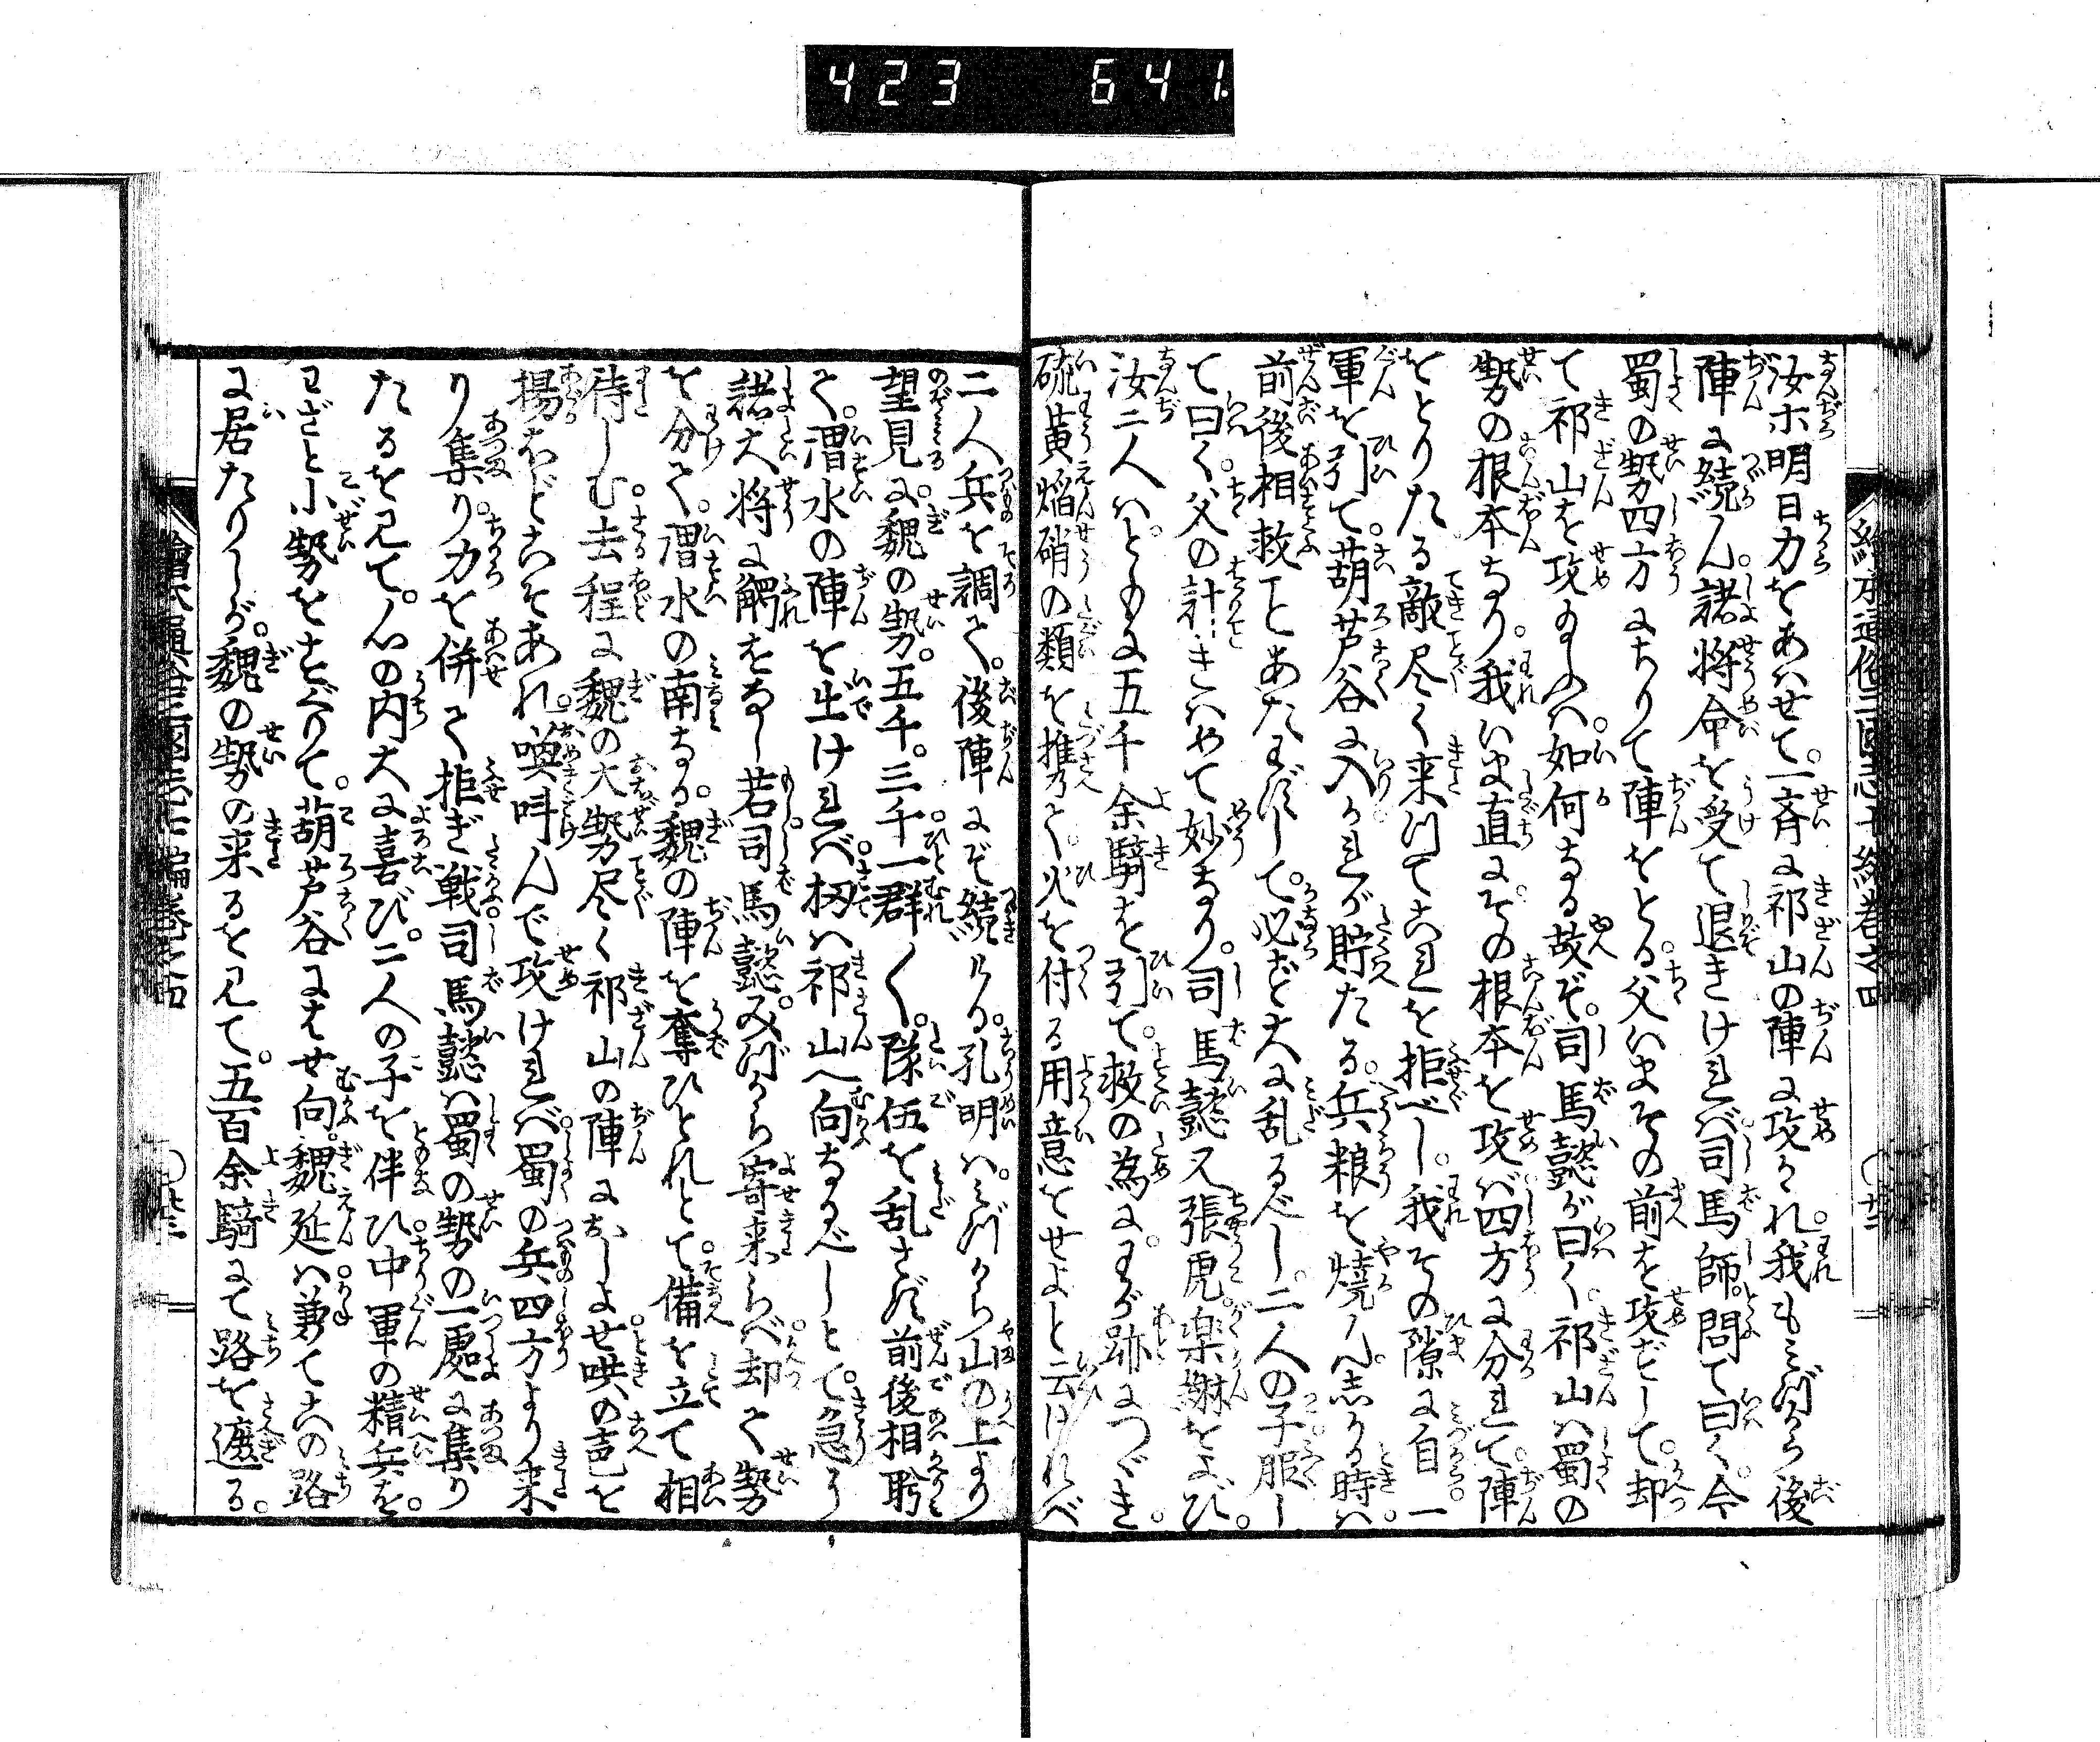 423 641
汝ホ明日力をあハせて。一斉に祁山の陣に攻かゝれ。我もミづから後
陣に続ん。諸将命を受て退きけれバ。司馬師。問て曰く。今
蜀の勢四方にちりて陣をとる。父いまその前を攻ずして。却
て祁山を攻給ふハ。如何なる故ぞ。司馬懿が曰く。祁山ハ蜀の
勢の根本なり。我いま直にその根本を攻バ。四方に分れて。陣
をとりたる敵尽く来つてこれを拒べし。我その隙に自一
軍を引て。葫芦谷に入かれが貯たる。兵粮を焼ん。しかる時ハ。
前後相救ことあたはずして。必ず大に乱るべし。二人の子服し
て曰く。父の計きハめて妙なり。司馬懿又張虎。楽綝をよび。
汝二人ハ。ともに五千余騎を引て。救の為に。わが跡につゞき。
硫黄焔硝の類を携て。火を付る用意をせよと云けれバ
二人兵を調て。後陣にぞ続ける。孔明ハ。ミづから山の上より
望見に。魏の勢。五千。三千一群〳〵。隊伍を乱さず。前後相顧
て。渭水の陣を出けれバ。扨ハ祁山へ向なるべしとて。急ぎ
諸大将に觸をなし。若司馬懿。みづから寄来らバ。却て勢
を分て。渭水の南なる。魏の陣を奪ひとれとて。備を立て相
待しむ。去程に魏の大勢尽く祁山の陣におしよせ。哄の声を
揚るほどこそあれ。喚叫んで攻けれバ。蜀の兵四方より来
り集り。力を併て拒ぎ戦。司馬懿ハ蜀の勢の一處に集り
たるを見て。心の内大に喜び。二人の子を伴ひ中軍の精兵を。
わざと小勢をすぐりて。葫芦谷にはせ向。魏延ハ。兼てこの路
に居たりしが。魏の勢の来るを見て。五百余騎にて路を遮る。